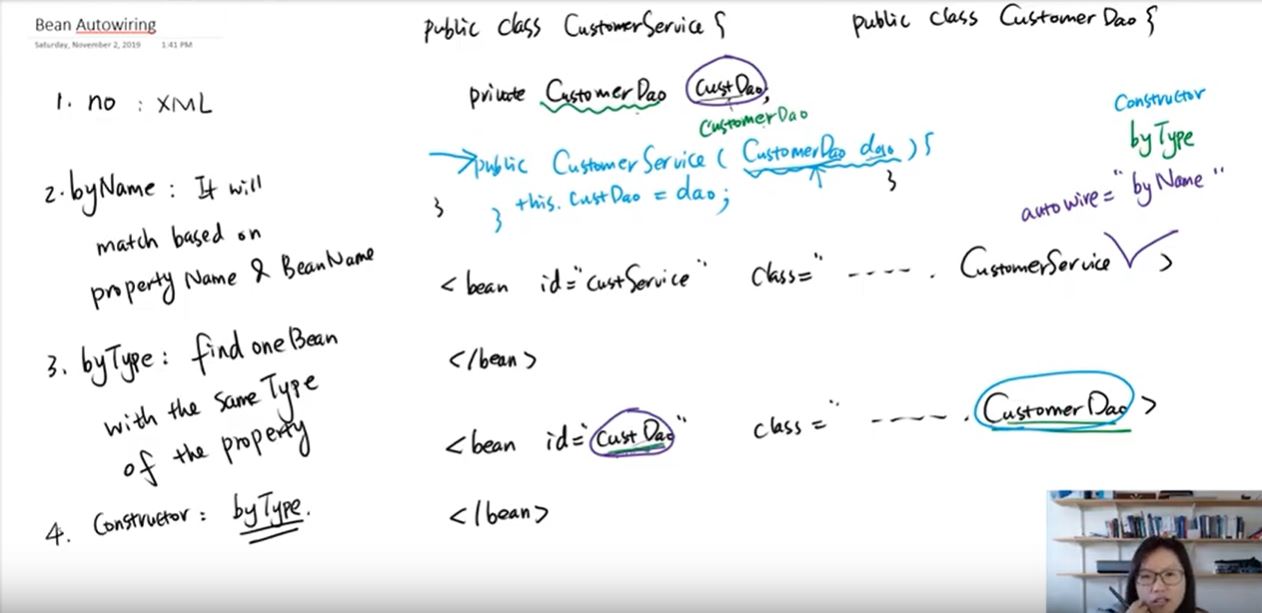 Bean Autowiring
Saturday, November 2, 2019 1:41 PM
1. no : XML
2. byName : It will
match based on
property Name & BeanName
3. byType : find one Bean
with the same Type
of the property
4. Constructor : byType.
public class CustomerService {
private CustomerDao custDao;
CustomerDao
public CustomerService ( CustomerDao dao ) {
this.custDao = dao;
}
}
public class CustomerDao {
}
Constructor
byType
autowire="byName"
<bean id="custService" class=" ----. CustomerService >
</bean>
<bean id="custDao" class=" ----. CustomerDao >
</bean>